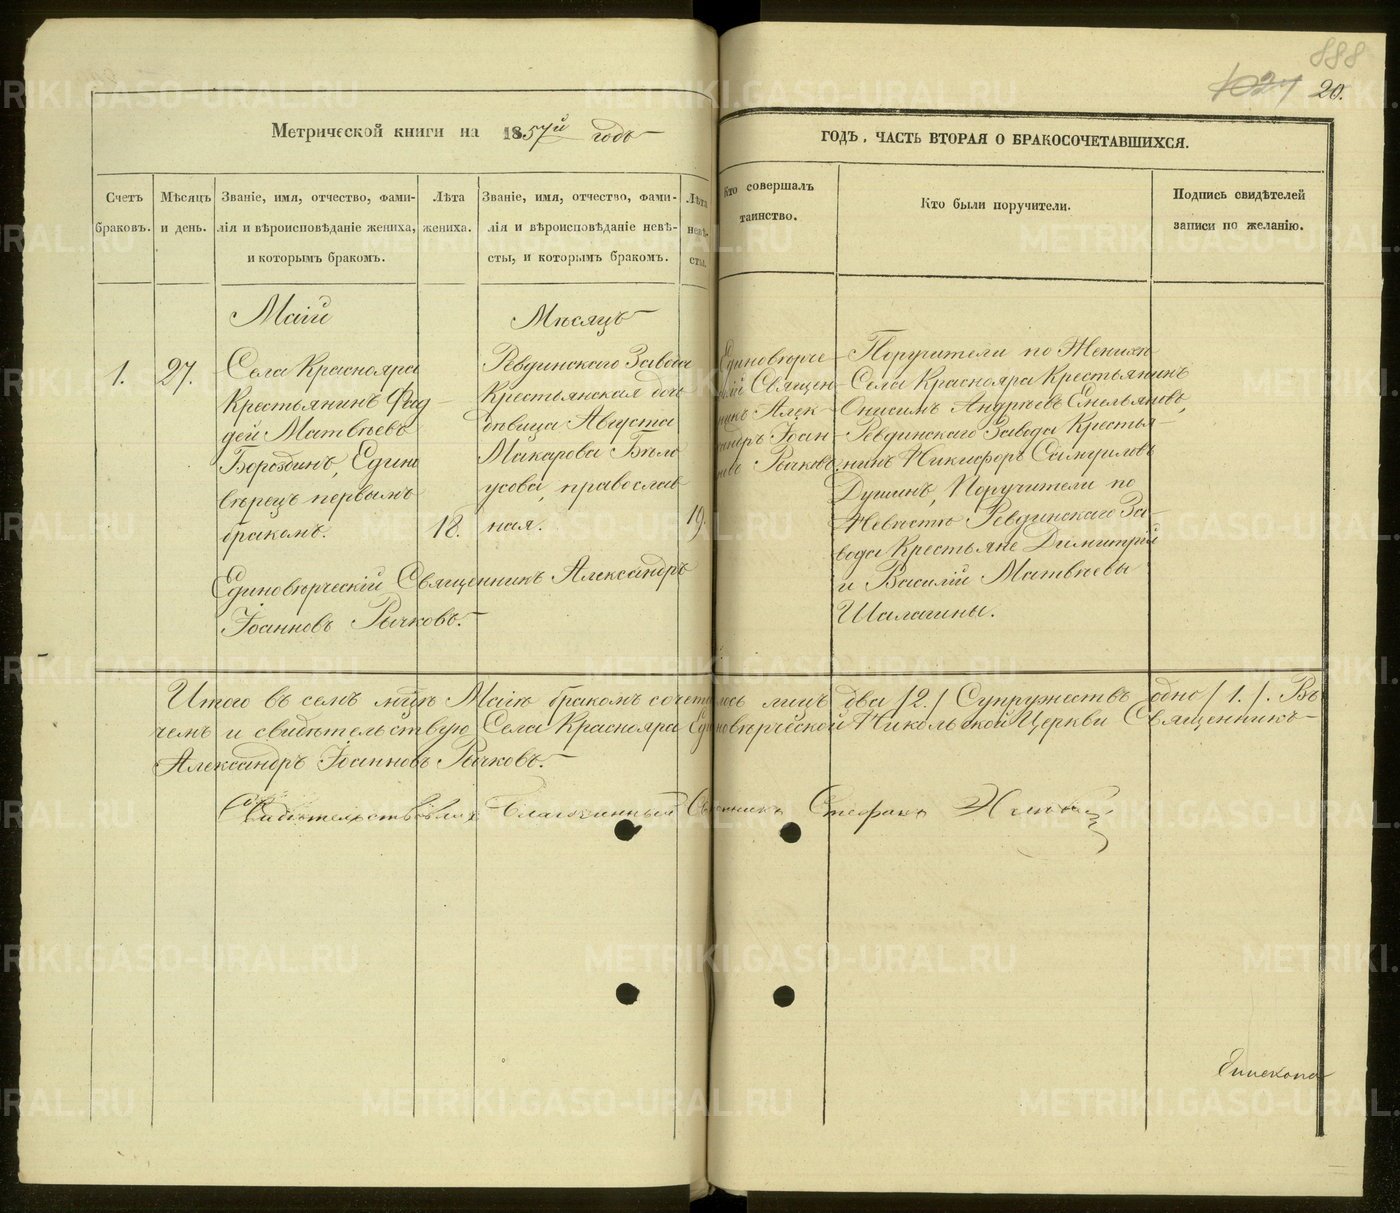 888
1024 20.
Метрической книги на 1857й годъ
ГОДЪ, ЧАСТЬ ВТОРАЯ О БРАКОСОЧЕТАВШИХСЯ.
Счетъ браковъ.
Мѣсяцъ и день.
Званіе, имя, отчество, фами-
лія и вѣроисповѣданіе жениха,
и которымъ бракомъ.
Лѣта жениха.
Званіе, имя, отчество, фами-
лія и вѣроисповѣданіе невѣ-
сты, и которымъ бракомъ.
Лѣта
невѣ-
сты.
Кто совершалъ
таинство.
Кто были поручители.
Подпись свидѣтелей
записи по желанію.
Маій Мѣсяцъ
1.
27.
Села Краснояра
Крестьянинъ Фад-
дей Матвѣевъ
Бороздинъ, Едино
вѣрецъ первымъ
бракомъ.
18.
Ревдинскаго Завода
Крестьянская дочь
дѣвица Августа
Макарова Бѣло
усова, православ
ная.
19.
Единовѣрче-
скій Священ-
никъ Алек-
сандръ Іоан-
новъ Рычковъ.
Поручители по Женихѣ
Села Краснояра Крестьянинъ
Онисимъ Андрѣевъ Емельяновъ,
Ревдинскаго Завода Крестья-
нинъ Никифоръ Самуиловъ
Душинъ, Поручители по
Невѣстѣ Ревдинскаго За-
вода Крестьяне Димитрій
и Василій Матвѣевы
Шалагины.
Единовѣрческій Священникъ Александръ
Іоанновъ Рычковъ.
Итого въ семъ мцѣ Маіѣ бракомъ сочеталось лицъ два /2./ Супружествъ одно /1./. Въ
чемъ и свидѣтельствую Села Краснояра Единовѣрческой Никольской Церкви Священникъ
Александръ Іоанновъ Рычковъ.
Свидѣтельствовалъ Благочинный Священникъ Стефанъ
Епископа
METRIKI.GASO-URAL.RU